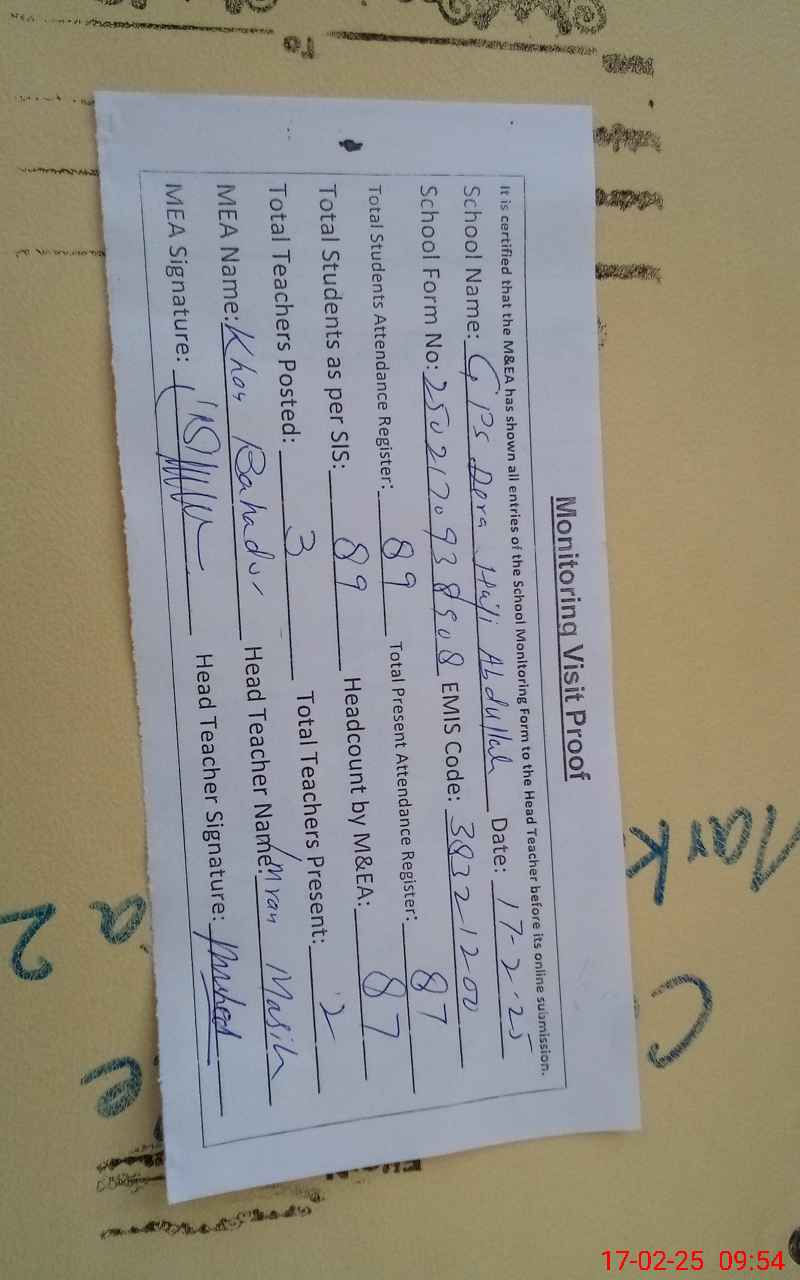 Monitoring Visit Proof
It is certified that the M&EA has shown all entries of the School Monitoring Form to the Head Teacher before its online submission.
School Name: GPS Dera Haji Abdullah Date: 17-2-25
School Form No: 2502170938508 EMIS Code: 38321200
Total Students Attendance Register: 89 Total Present Attendance Register: 87
Total Students as per SIS: 89 Headcount by M&EA: 87
Total Teachers Posted: 3 Total Teachers Present: 2
MEA Name: Bahadur Head Teacher Name: Imran Masih
MEA Signature: Head Teacher Signature:
TO
17-02-25 09:54